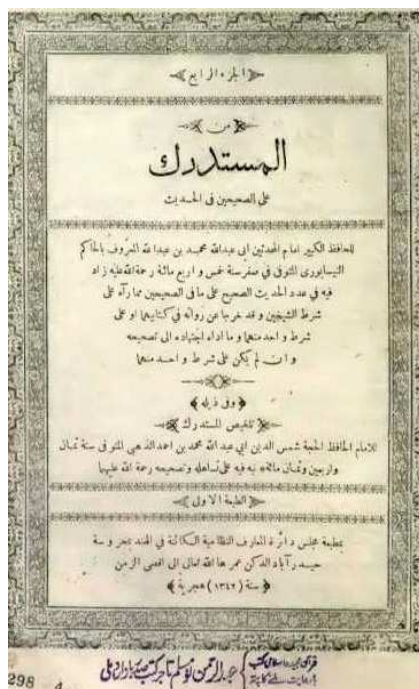 الجزء الرابع
من
المستدرك
على الصحيحين في الحديث
للحافظ الكبير امام المحدثين ابى عبدالله محمد بن عبدالله المعروف بالحاكم
النيسابورى المتوفى فى صفر سنة خمس و اربع مائة رحمة الله عليه زاد
فيه فى عدد الحديث الصحيح على ما فى الصحيحين مما رآه على
شرط الشيخين و قد خرجا عن رواته فى كتابيهما او على
شرط واحد منهما و ما اداه اجتهاده الى تصحيحه
و ان لم يكن على شرط واحد منهما
وفى ذيله
تلخيص المستدرك
للامام الحافظ الحجة شمس الدين ابى عبد الله محمد بن احمد الذهبى المتوفى سنة ثمان
واربعين وثمان مائة نبه فيه على تساهله وتصحيحه رحمة الله عليهما
الطبعة الاولى
بمطبعة مجلس دائرة المعارف النظامية الكائنة فى الهند بمحروسة
حيدر آباد الدكن عمرها الله تعالى الى اقصى الزمن
سنة (١٣٤٢) هجرية
عبدالرحمن نومسلم تاجر كتب
298 4